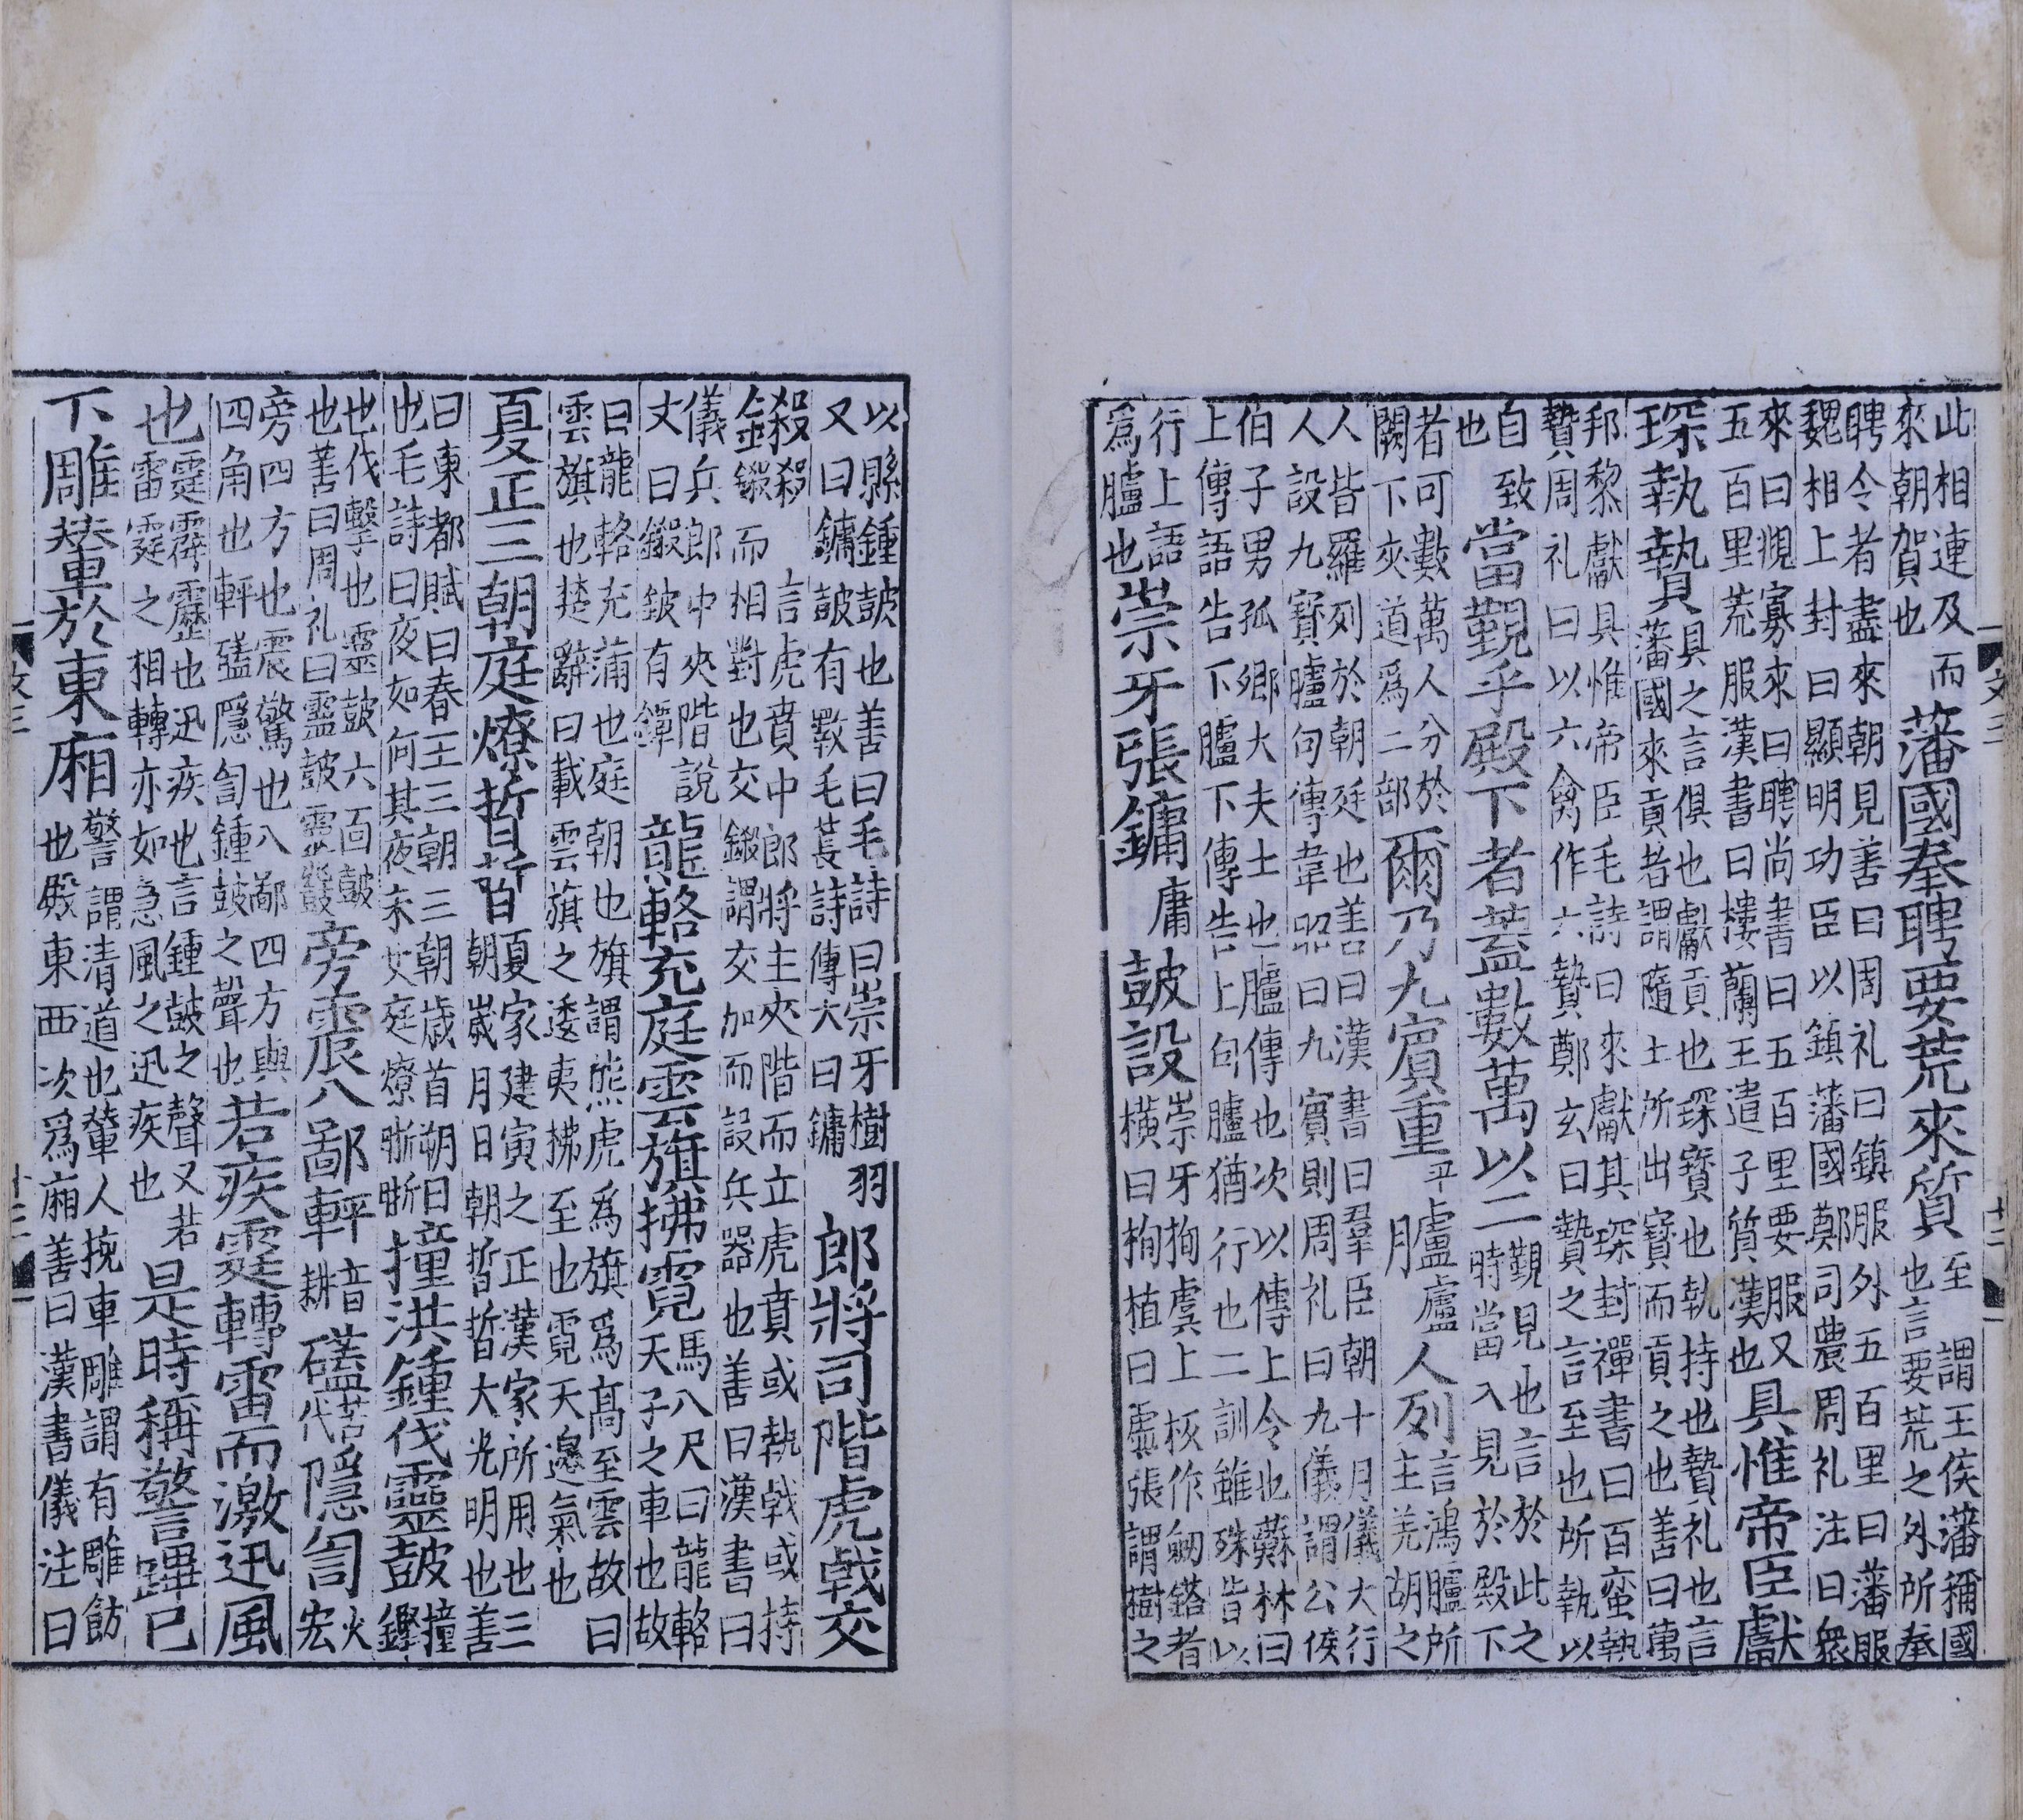 此相連及而藩國奉聘要荒來質至謂王侯藩稱國
來朝賀也也言要荒之外所奉
聘令者盡來朝見善曰周礼曰鎮服外五百里曰藩服
魏相上封曰顯明功臣以鎮藩國鄭司農周礼注曰衆
來曰覜寡來曰聘尚書曰五百里要服又
五百里荒服漢書曰樓蘭王遣子質漢也具惟帝臣獻
琛執贄具之言俱也獻貢也琛寶也執持也贄礼也言
藩國來貢者謂隨土所出寶而貢之也善曰萬
邦黎獻具惟帝臣毛詩曰來獻其琛封禪書曰百蛮執
贄周礼曰以六禽作六贄鄭玄曰贄之言至也所執以
自致
也當覲乎殿下者蓋數萬以二覲見也言於此之
時當入見於殿下
者可數萬人分於
闕下夾道爲二部爾乃九賓重平臚廬人列言鴻臚所
主羌胡之
人皆羅列於朝廷也善曰漢書曰羣臣朝十月儀大行
人設九賓臚句傳韋昭曰九賓則周礼曰九儀謂公侯
伯子男孤卿大夫士也臚傳也次以傳上令也蘇林曰
上傳語告下臚下傳告上句臚猶行也二訓雖殊皆以
行上語
爲臚也崇牙張鏞庸鼓設崇牙栒虡上板作劒鍩者
横曰栒植曰虡張謂樹之
以縣鍾鼓也善曰毛詩曰崇牙樹羽
又曰鏞鼓有斁毛萇詩傳大曰鏞郎將司階虎戟交
鎩殺言虎賁中郎將主夾階而立虎賁或執戟或持
鎩而相對也交鎩謂交加而設兵器也善曰漢書曰
儀兵郎中夾階說
文曰鎩鈹有鐔龍輅充庭雲旗拂霓馬八尺曰龍輅
天子之車也故
曰龍輅充蒲也庭朝也旗謂熊虎爲旗爲髙至雲故曰
雲旗也楚辭曰載雲旗之逶夷拂至也霓天邉氣也
夏正三朝庭燎晢晢夏家建寅之正漢家所用也三
朝嵗月日朝晢晢大光明也善
曰東都賦曰春王三朝三朝歳首朔日
也毛詩曰夜如何其夜未艾庭燎晣晣撞洪鍾伐靈鼓撞
鏗
也伐擊也靈鼓六面鼓
也善曰周礼曰靈鼓靈鼗旁震八鄙軯音
耕磕苦
代隱訇火
宏
旁四方也震驚也八鄙四方與
四角也軯磕隱訇鍾鼓之聲也若疾霆轉雷而激迅風
也霆霹靂也迅疾也言鍾鼓之聲又若
雷霆之相轉亦如急風之迅疾也是時稱警蹕已
下雕輦於東廂警謂清道也輦人挽車雕謂有雕飾
也殿東西次爲廂善曰漢書儀注曰
文三
十三